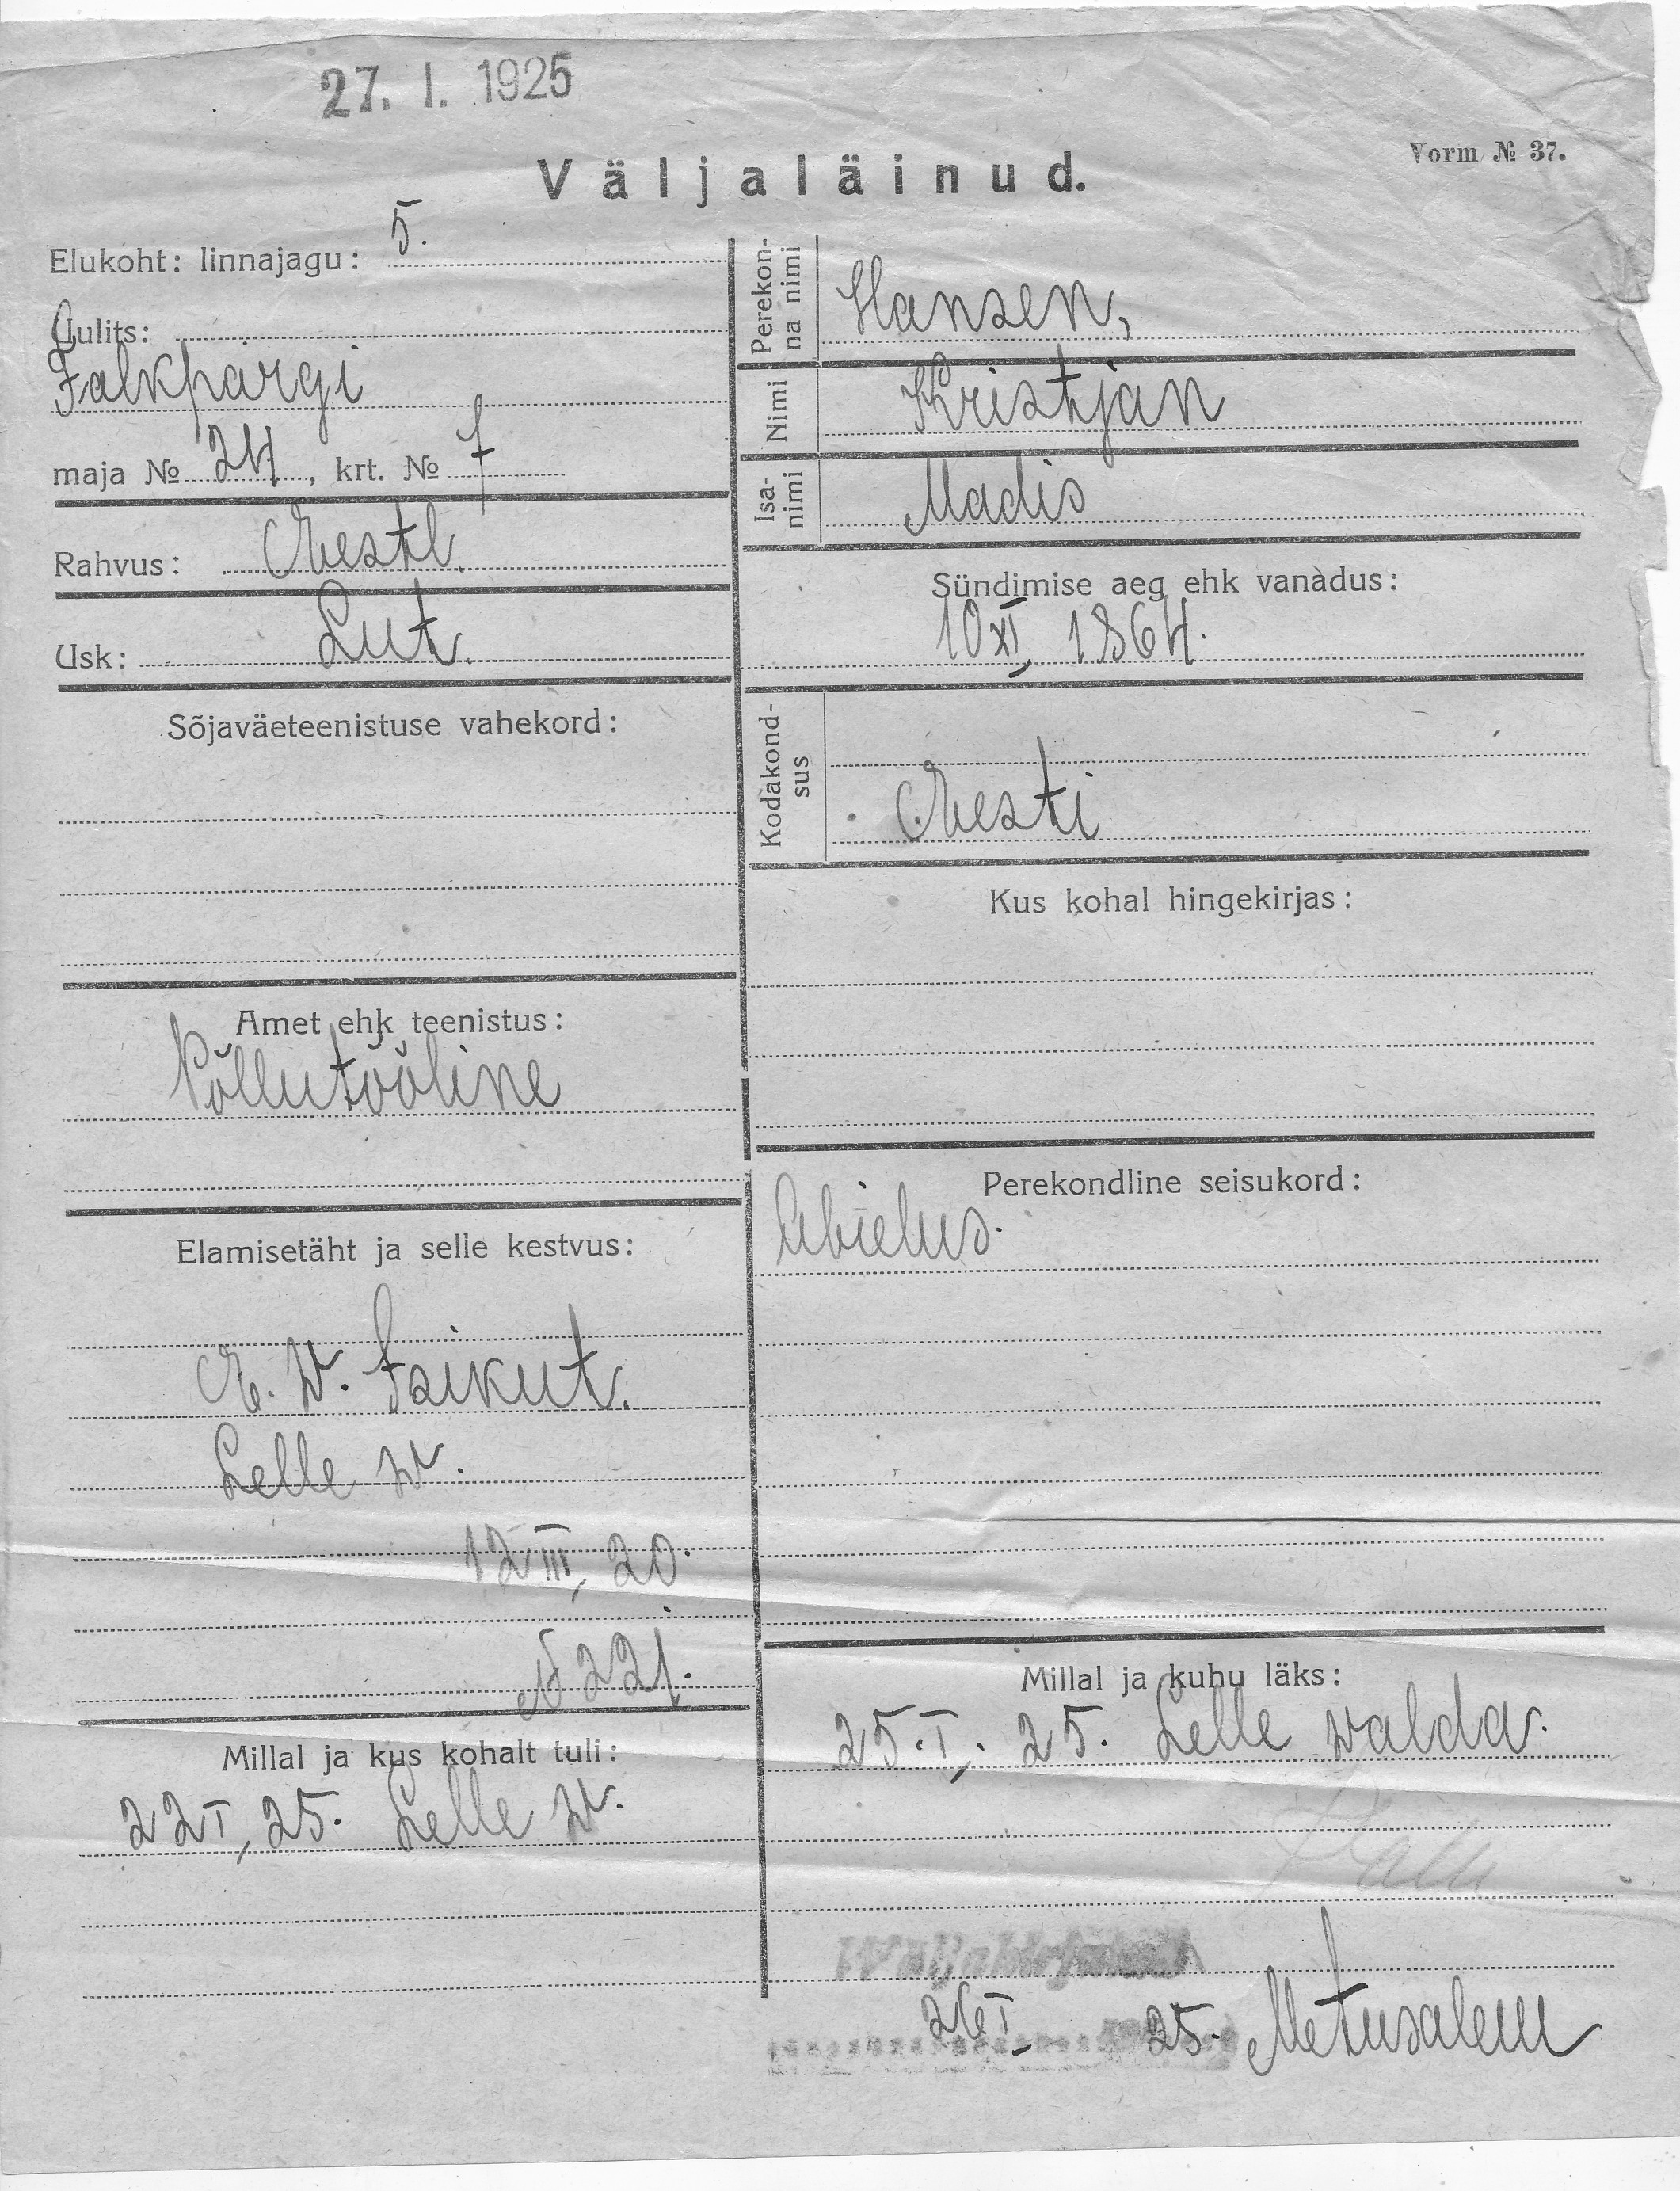 27. I. 1925
Vorm № 37.
Väljaläinud.
Elukoht: linnajagu: 5.
Uulits:
Falkpargi
maja № 24, krt. № 7
Rahvus: Eestl.
Usk: Lut.
Sõjaväeteenistuse vahekord:
Amet ehk teenistus:
Põllutööline
Elamisetäht ja selle kestvus:
E. W. Isikut.
Lelle w.
12 III, 20.
№ 221.
Millal ja kus kohalt tuli:
22 I, 25. Lelle w.
Perekon-
na nimi
Hansen,
Nimi Kristjan
Isa-
nimi
Madis
Sündimise aeg ehk vanadus:
10 XI, 1864.
Kodakond-
sus
Eesti
Kus kohal hingekirjas:
Perekondline seisukord:
Abielus.
Millal ja kuhu läks:
25. I, 25. Lelle walda.
26 I 25. Metusalem